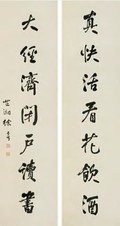 真快活看花飲酒
大經濟閉戶讀書